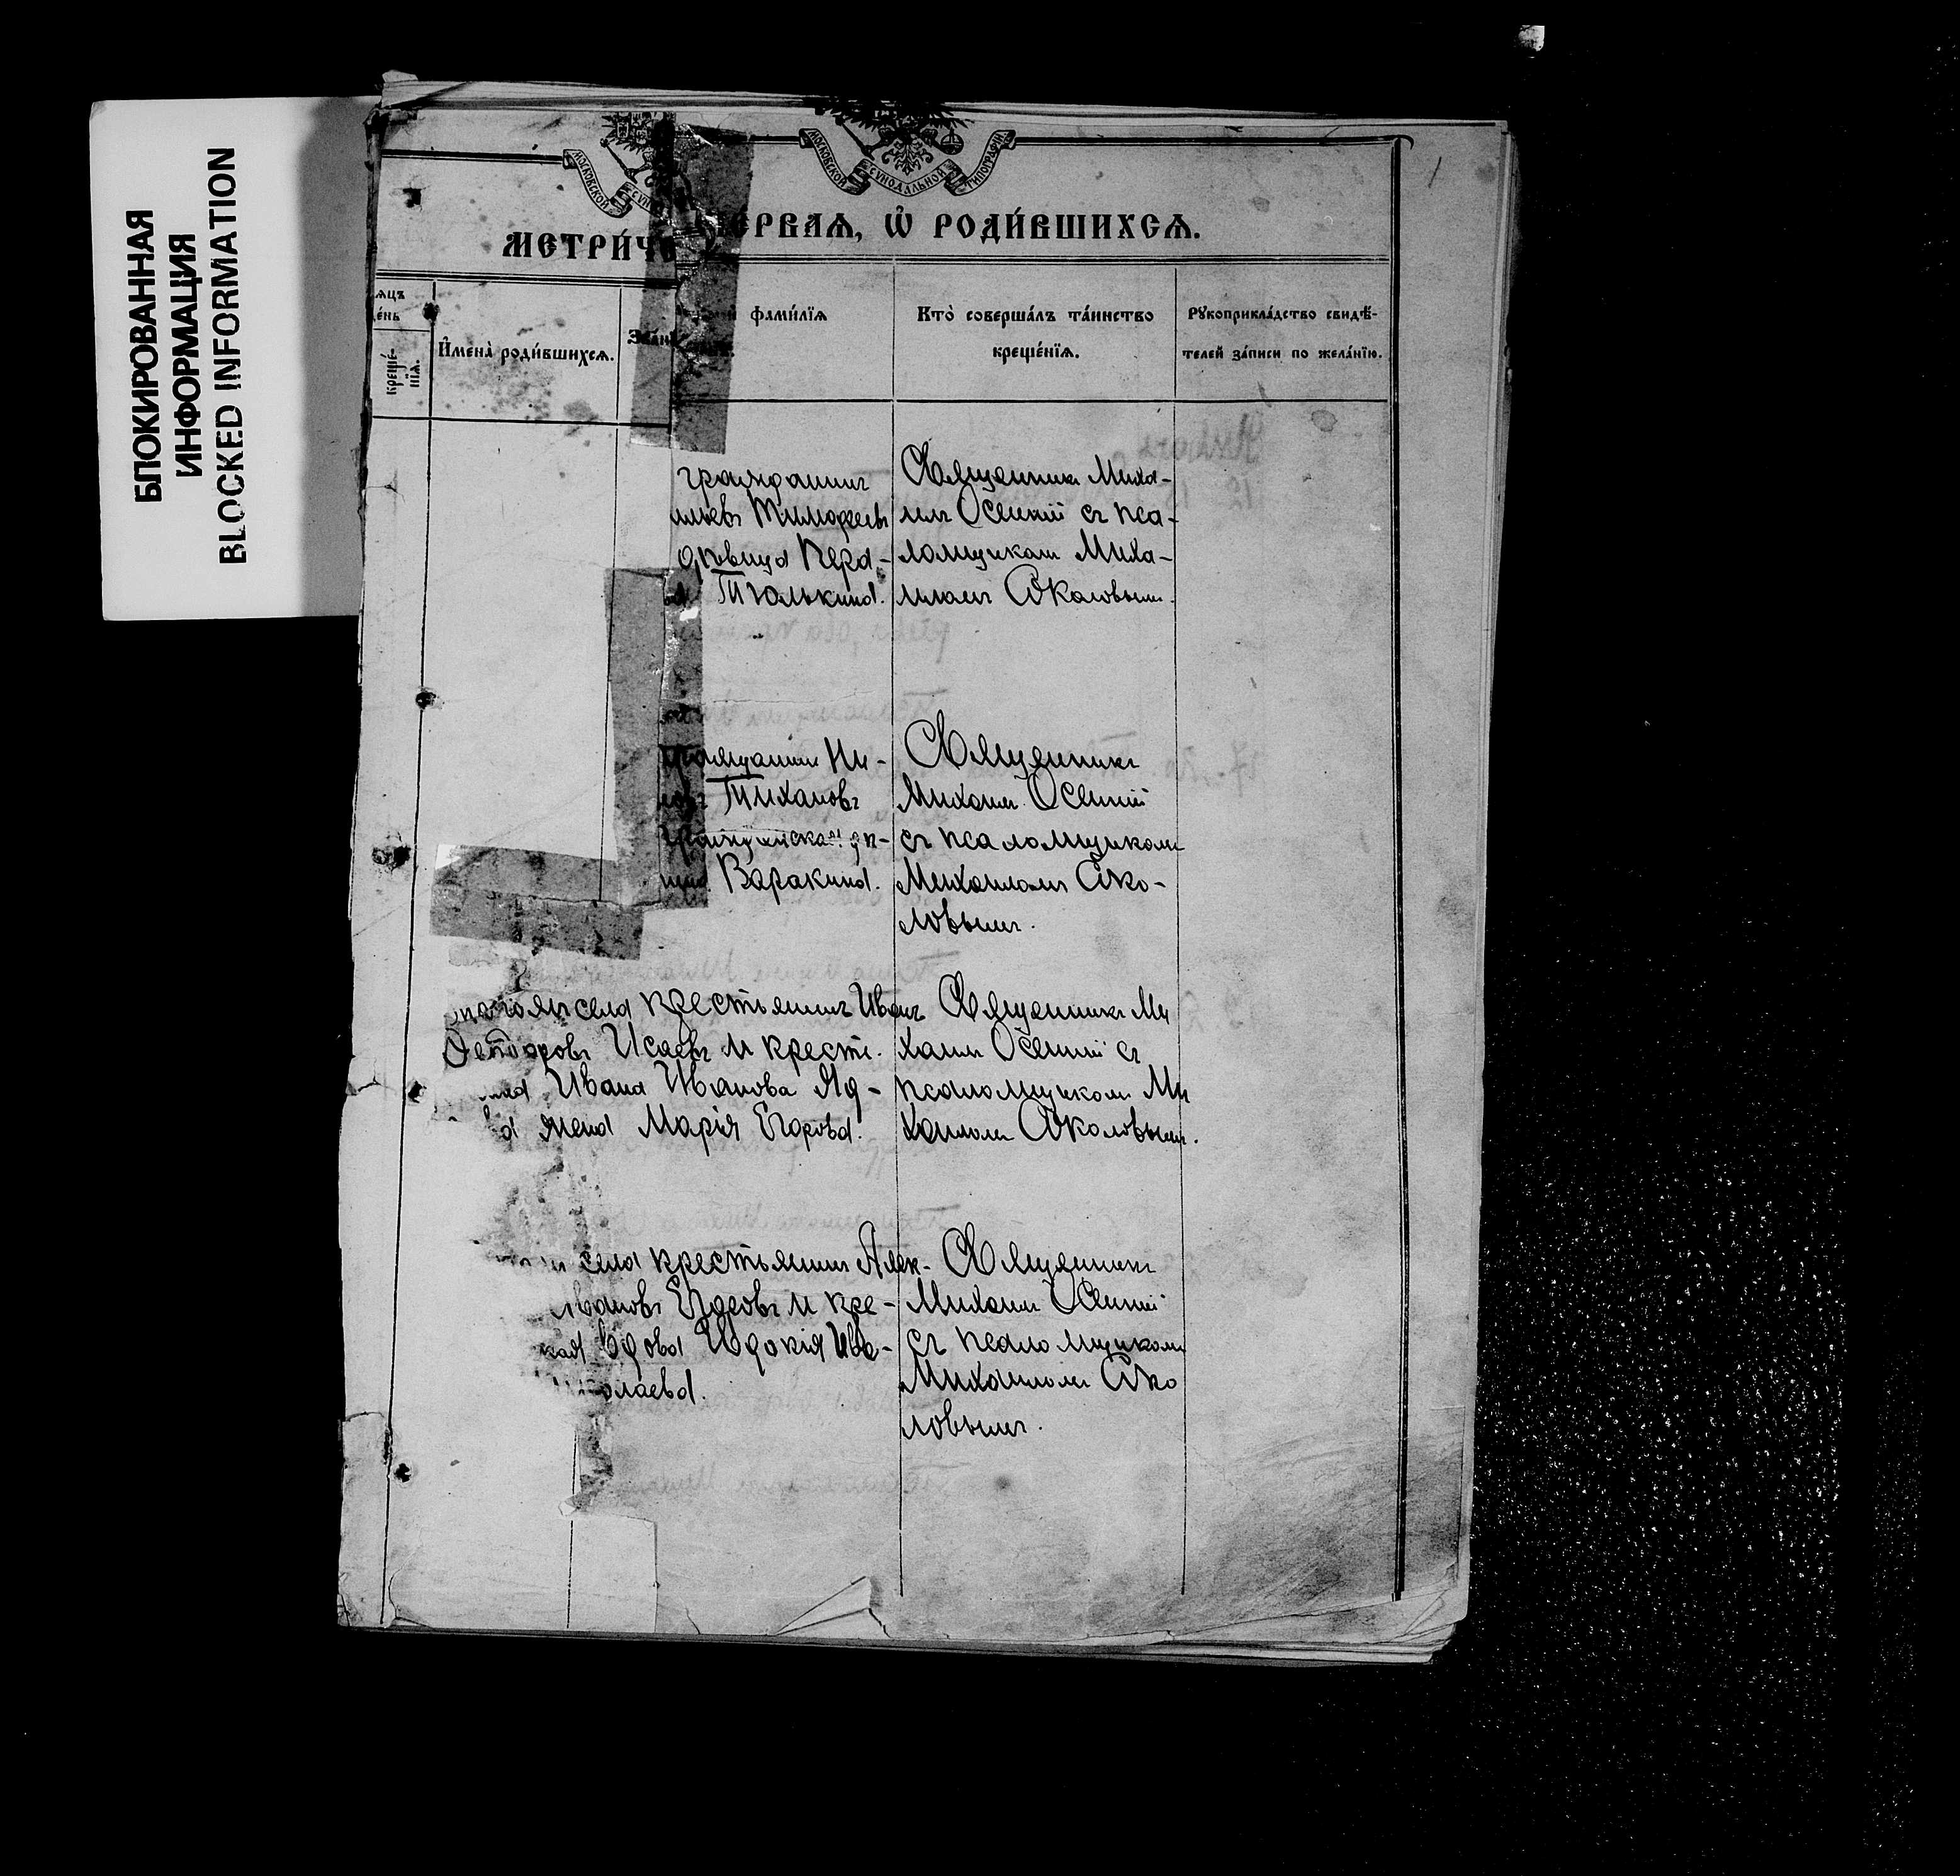 БЛОКИРОВАННАЯ
ИНФОРМАЦИЯ
BLOCKED INFORMATION
МОСКОВСКОЙ
МОСКОВСКОЙ СѴНОДАЛЬНОЙ ТИПОГРАФІИ
МЕТРИ́ЧЕ
ЕРВАѦ, Ѡ҆ РОДИ́ВШИХСѦ.
ѧцъ
ень
креще́-
нїѧ.
И҆мена̀ роди́вшихсѧ.
Зван
фами́лїѧ
Кто̀ соверша́лъ та́инство
креще́нїѧ.
Рꙋкоприкла́дство свидѣ́-
телей за́писи по жела́нїю.
гражданинъ
Тимофеевъ
Тюлькина.
Священникъ Миха-
илъ Осенній съ пса-
ломщикомъ Миха-
иломъ Соколовымъ.
Тихановъ
Варакина.
Священникъ
Михаилъ Осенній
съ псаломщикомъ
Михаиломъ Соко-
ловымъ.
села крестьянинъ Иванъ
Исаевъ и крест.
Ивана Иванова Яд-
жена Марія Егорова.
Священникъ Ми
хаилъ Осенній съ
псаломщикомъ Ми
хаиломъ Соколовымъ.
села крестьянинъ Алек-
Ивановъ Егоровъ и кре-
кая вдова Евдокія Ива-
олаева.
Священникъ
Михаилъ Осенній
съ псаломщикомъ
Михаиломъ Соко
ловымъ.